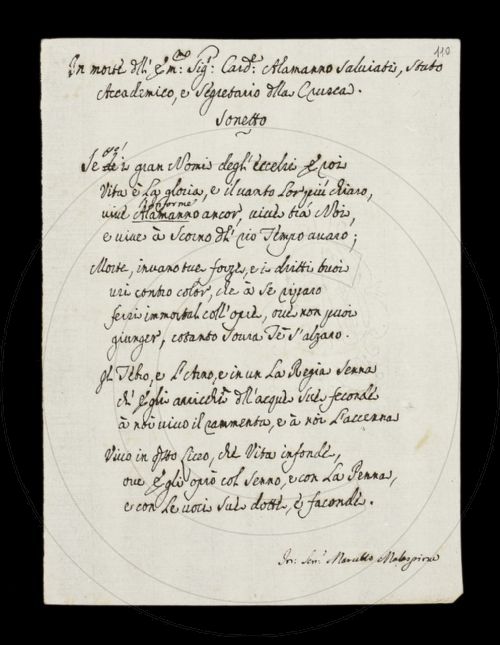 110
In morte dll' Em:mo Sig: Card: Alamanno Salviati, Stato
Accademico, e Segretario dlla Crusca.
Sonetto
Se de i gran Nomi degl'eccelsi Eroi
Vita è La gloria, e il vanto Lor più chiaro,
vive Alamanno ancor, vive trà Noi,
e vive à Scorno dl' rio Tempo avaro;
Morte, invano tue forze, e i dritti tuoi
usi contro color, che à Se riparo
fersi immortal coll'opre, ove non puoi
giunger, cotanto soura Te s'alzaro.
Gl Tebro, e L'Arno, e in un La Regia Senna
ch' Egli arricchì dll'acque sue feconde
à noi vivo il rammenta, e à noi L'accenna
Vivo in qsto Liceo, che Vita infonde,
ove Egli oprò col Senno, e con La Penna,
e con Le voci sue dotte, e faconde.
Malaspina